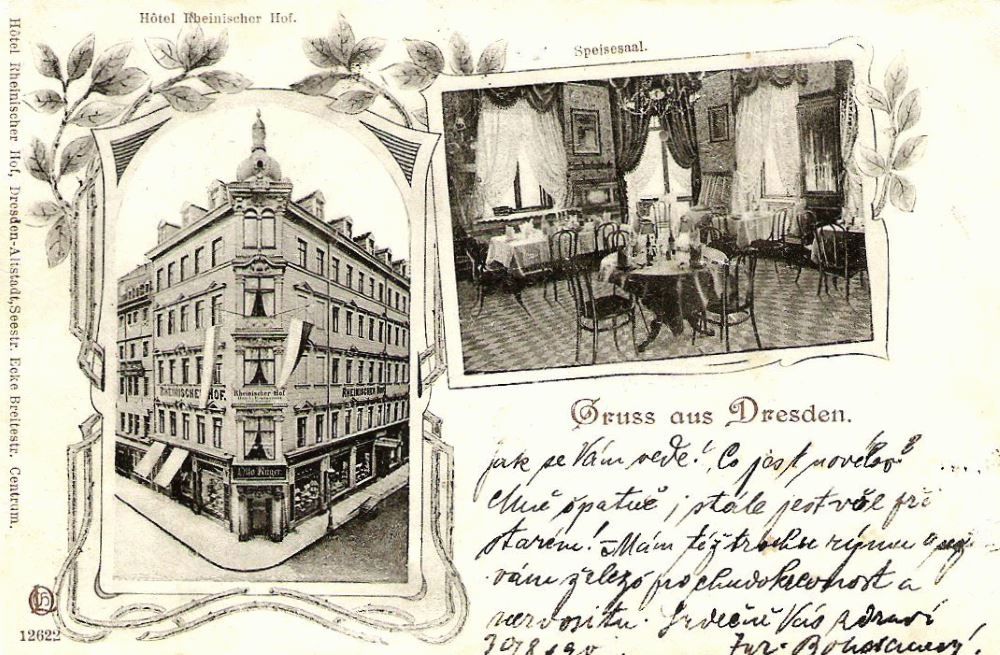 Hôtel Rheinischer Hof.
Speisesaal.
Hôtel Rheinischer Hof, Dresden-Altstadt, Seestr. Ecke Breitestr. Centrum.
RHEINISCHER HOF.
Rheinischer Hof
RHEINISCHER HOF
Otto Rüger
Gruss aus Dresden.
Jak se Vám vede! Co jest nového?
Mně špatně, stále jest vše při
starém! Mám též trochu rýmu a
železo po chudokrevnost a
nervositu. Srdečně Vás zdraví
12622